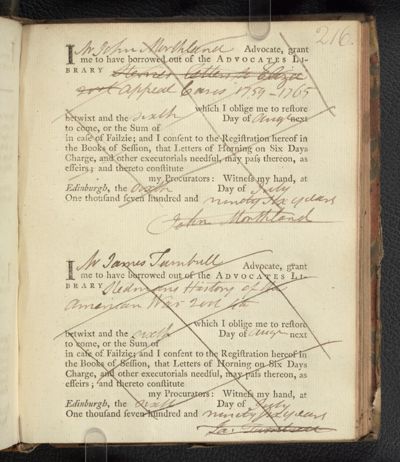 216.
I Mr John Morthland Advocate, grant
me to have borrowed out of the ADVOCATES LI-
BRARY Sterne's Letters to Eliza
Appeal Cases 1759-1765
which I oblige me to restore
betwixt and the sixth Day of Augt next
to come, or the Sum of
in case of Failzie; and I consent to the Registration hereof in
the Books of Session, that Letters of Horning on Six Days
Charge, and other executorials needful, may pass thereon, as
effeirs; and thereto constitute
my Procurators: Witness my hand, at
Edinburgh, the sixth Day of July
One thousand seven hundred and ninety six years
John Morthland
I Mr James Turnbull Advocate, grant
me to have borrowed out of the ADVOCATES LI-
BRARY Stedmans History of the
American War 2 vols 4to
which I oblige me to restore
betwixt and the sixth Day of Augt next
to come, or the Sum of
in case of Failzie; and I consent to the Registration hereof in
the Books of Session, that Letters of Horning on Six Days
Charge, and other executorials needful, may pass thereon, as
effeirs; and thereto constitute
my Procurators: Witness my hand, at
Edinburgh, the sixth Day of July
One thousand seven hundred and ninety six years
Ja: Turnbull